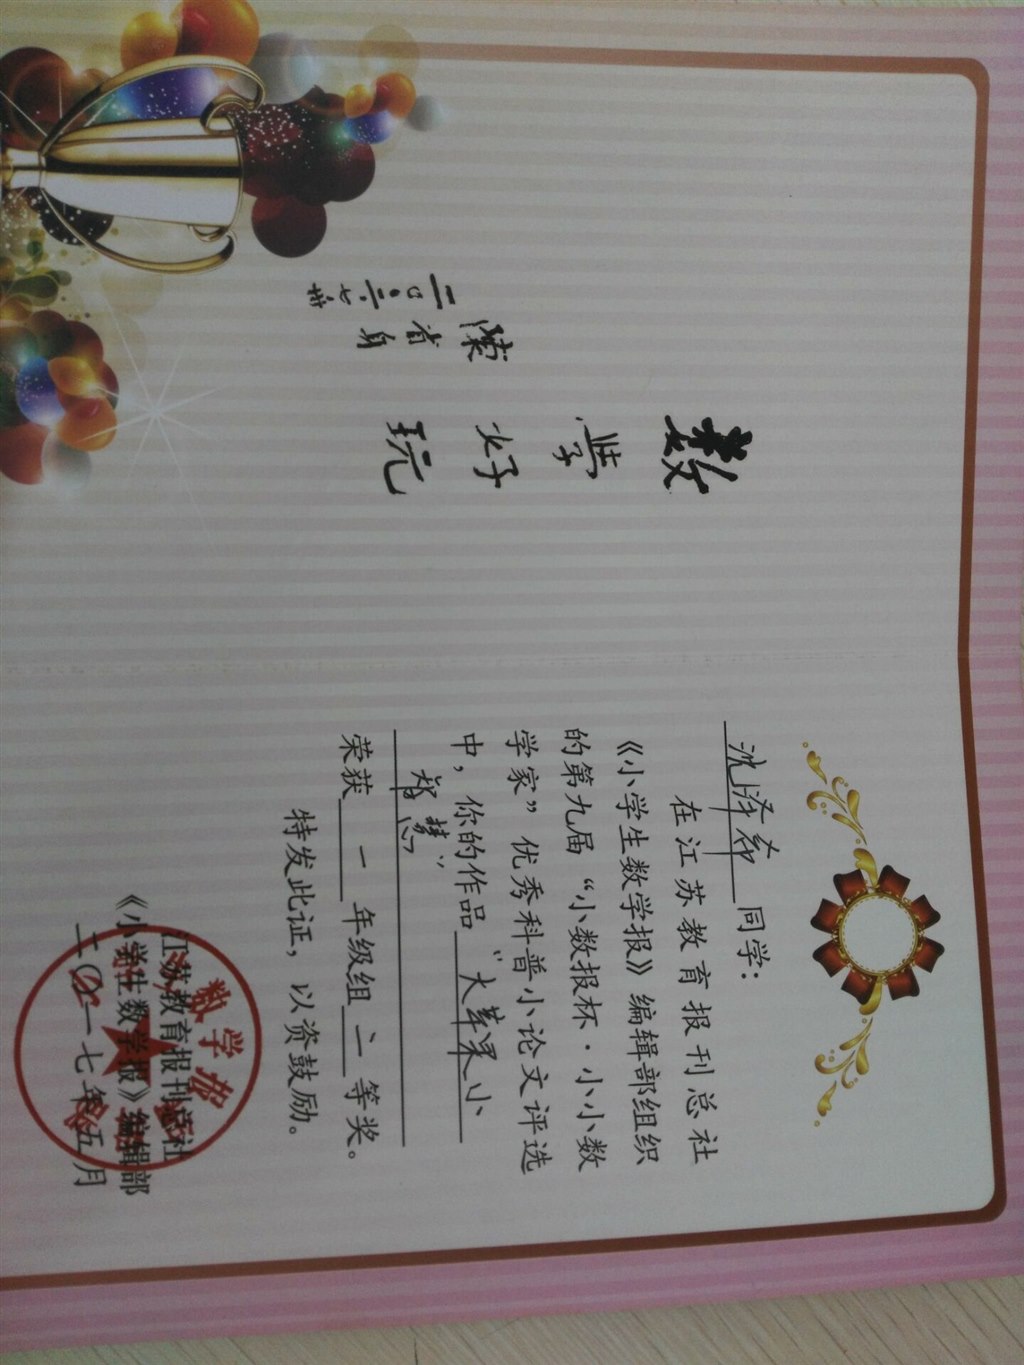 数学好玩
陈省身
沈泽
同学：
在江苏教育报刊总社
《小学生数学报》编辑部组织
的第九届“小数报杯·小小数
学家”优秀科普小论文评选
中，你的作品“大苹果小
智慧”
荣获一年级组二等奖。
特发此证，以资鼓励。
江苏教育报刊总社
《小学生数学报》编辑部
二〇一七年五月